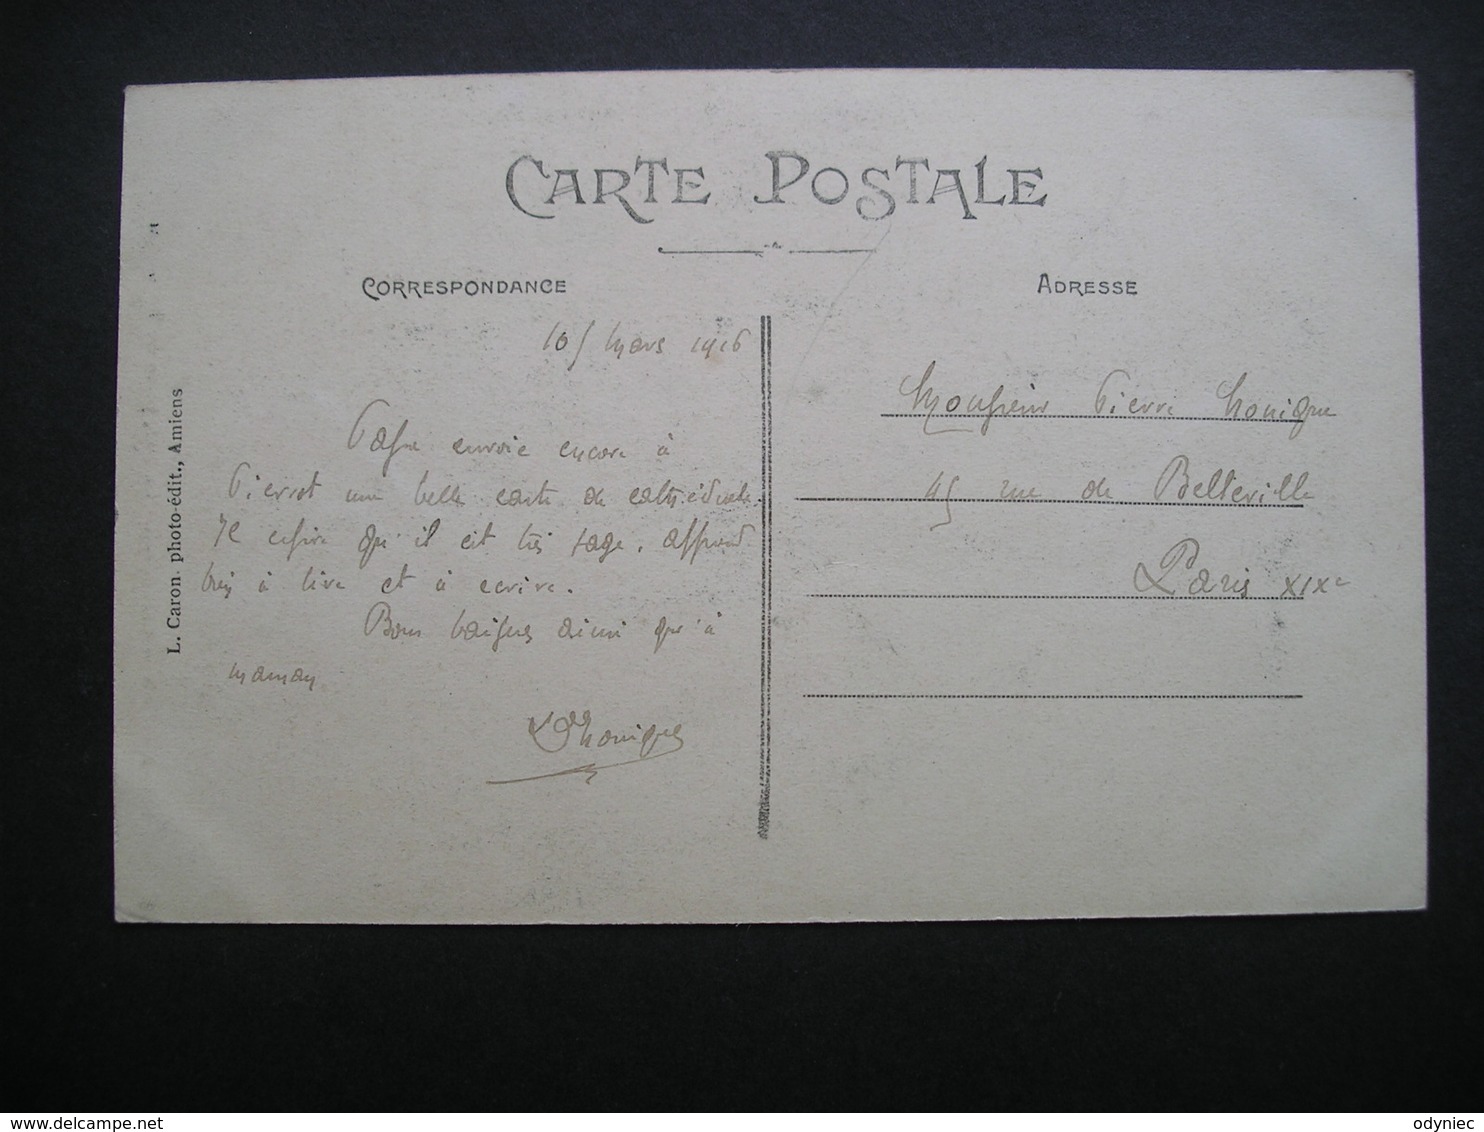 CARTE POSTALE
CORRESPONDANCE
ADRESSE
L. Caron. photo-édit., Amiens
mars 1916
envoie encore à
Pierrot une belle carte de cathédrale.
Je espère qu'il est très sage. apprend
bien à lire et à ecrire.
Bons baisers ainsi qu'à
maman
Monsieur Pierre
45 rue de Belleville
Paris XIXe
delcampe.net
odyniec